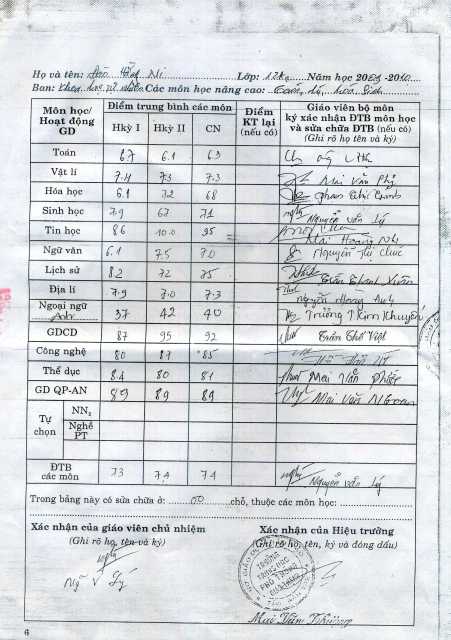 Họ và tên: Đào Hồng Ni Lớp: 12 Năm học 2009 -2010
Ban: Khoa học tự nhiên Các môn học nâng cao: Toán, lý, hóa Sinh
Môn học/ Hoạt động GD Điểm trung bình các môn Điểm KT lại (nếu có) Giáo viên bộ môn ký xác nhận ĐTB môn học và sửa chữa ĐTB (nếu có) (Ghi rõ họ tên và ký)
Hkỳ I Hkỳ II CN
Toán 6.7 6.1 6.3
Vật lí 7.4 7.3 7.3 Mai Văn
Hóa học 6.1 7.2 6.8 Phan
Sinh học 7.9 6.7 7.1 Nguyễn Văn Lý
Tin học 8.6 10.0 9.5 Mai Hoàng
Ngữ văn 6.1 7.5 7.0 Nguyễn Thị Chúc
Lịch sử 8.2 7.2 7.5 Trần Thanh Xuân
Địa lí 7.9 7.0 7.3 Nguyễn Hoàng Anh
Ngoại ngữ Anh 3.7 4.2 4.0 Trương T Kim Khuyến
GDCD 8.7 9.5 9.2 Trần Thế Việt
Công nghệ 8.0 8.7 8.5
Thể dục 8.4 8.0 8.1 Mai Văn
GD QP-AN 8.9 8.9 8.9 Mai Văn
Tự chọn NN₂
Nghề PT
ĐTB các môn 7.3 7.4 7.4 Nguyễn Văn Lý
Trong bảng này có sửa chữa ở: 00 chỗ, thuộc các môn học:
Xác nhận của giáo viên chủ nhiệm Xác nhận của Hiệu trưởng
(Ghi rõ họ, tên và ký) (Ghi rõ họ, tên, ký và đóng dấu)
TRƯỜNG
TRUNG HỌC
PHỔ THÔNG
Ng V Lý
Mai Văn
6